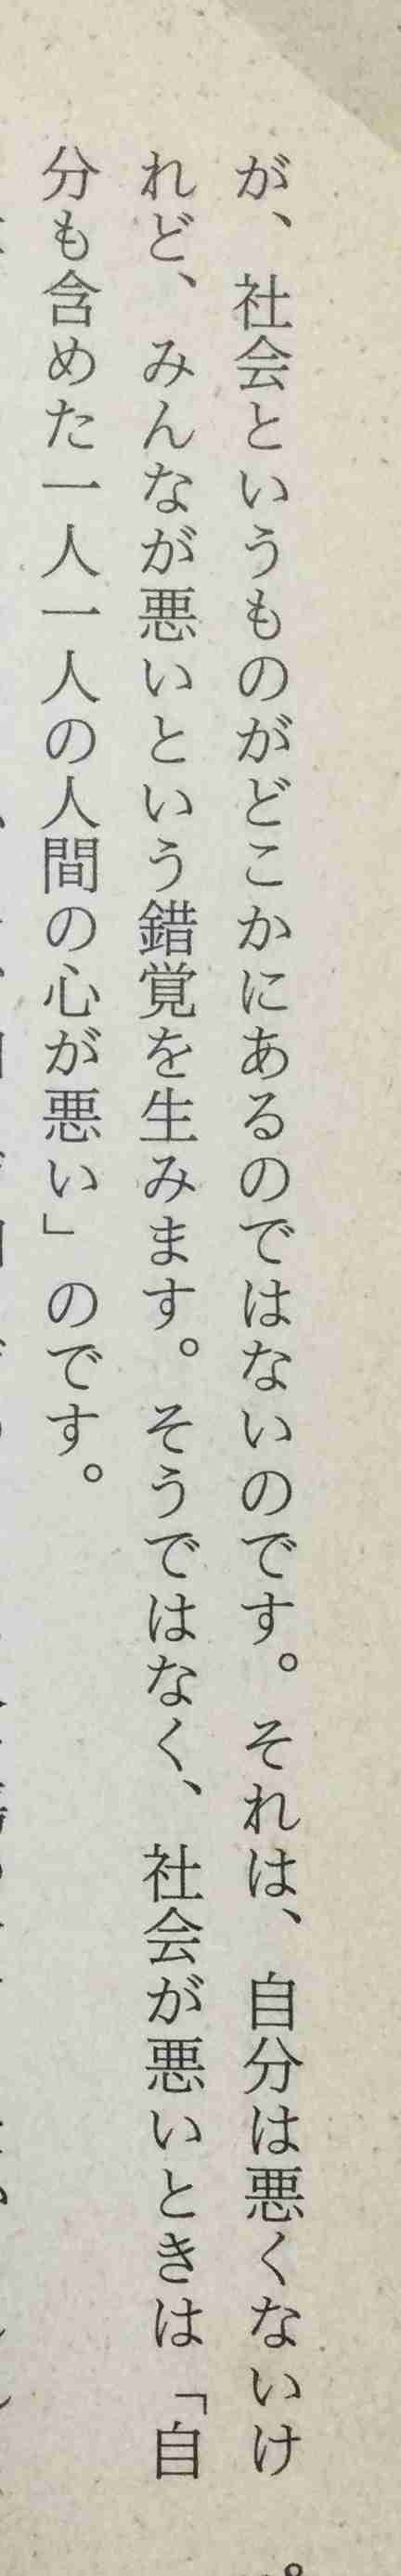 が、社会というものがどこかにあるのではないのです。それは、自分は悪くないけ
れど、みんなが悪いという錯覚を生みます。そうではなく、社会が悪いときは「自
分も含めた一人一人の人間の心が悪い」のです。